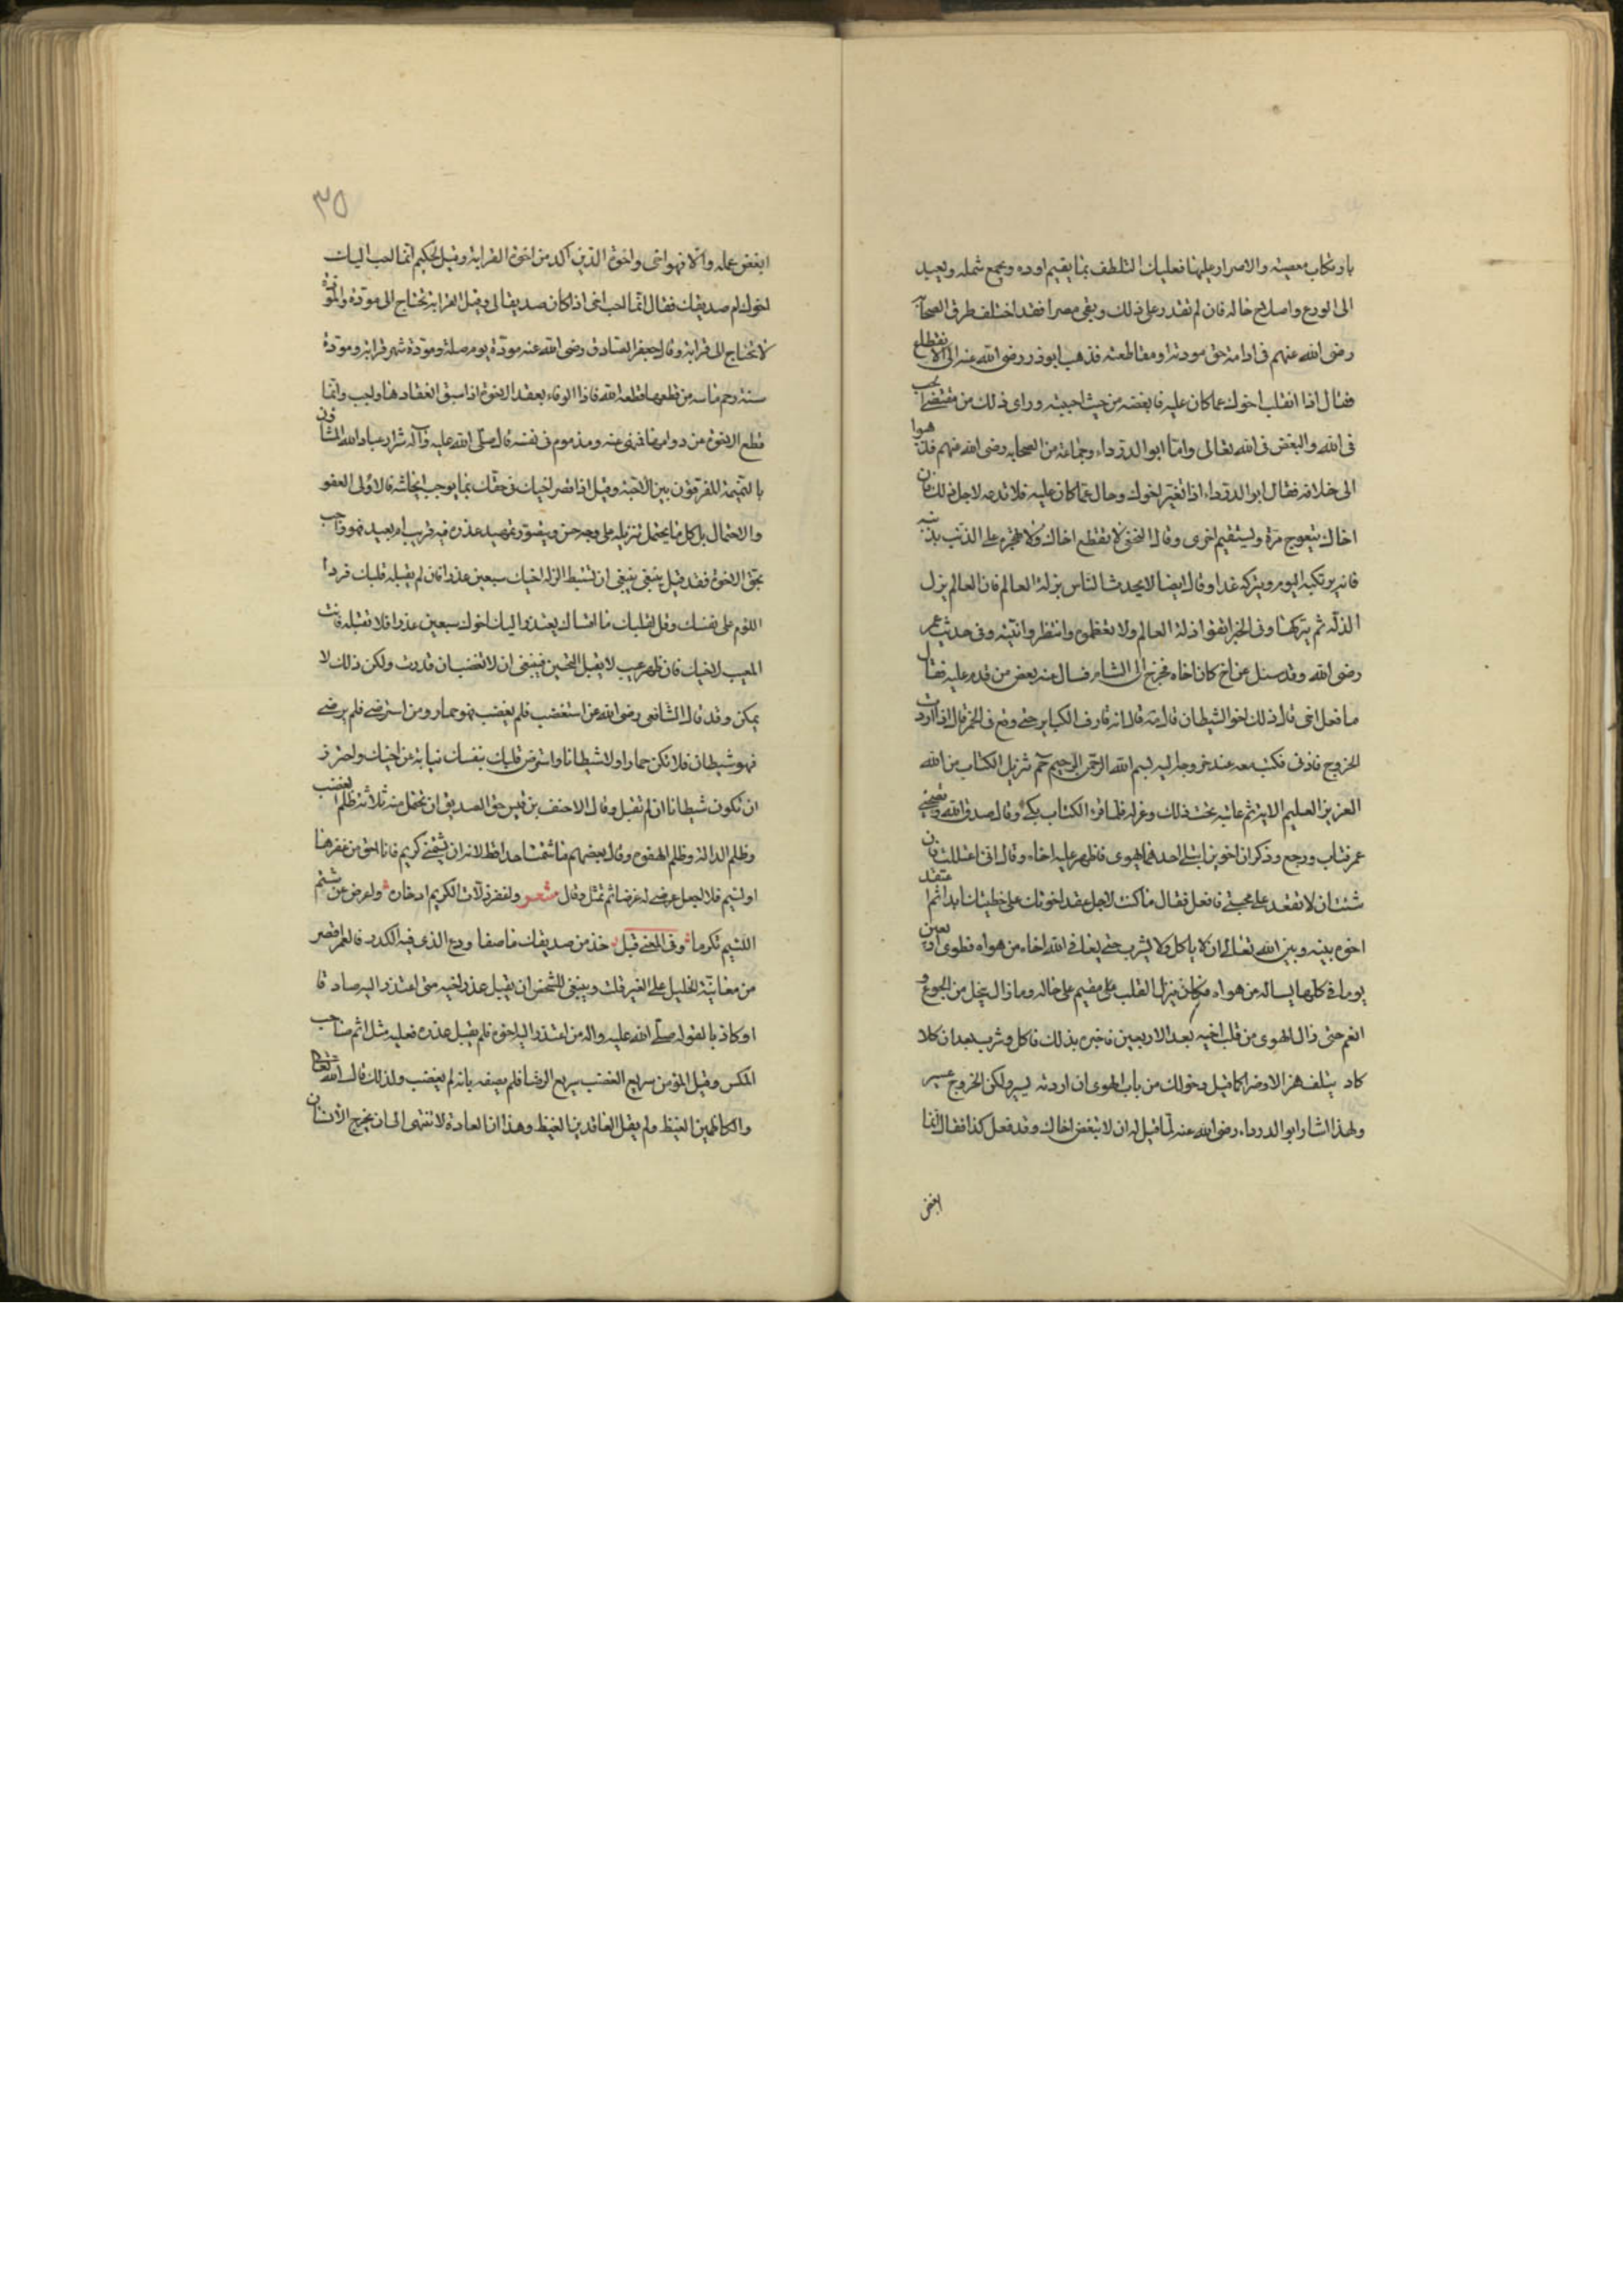 بارتكاب معصية والاصرار عليها فعليك التلطف بما يقيم اوده ويجمع شمله ويعيد
الى الورع واصلاح حاله فان لم تقدر على ذلك وبقى مصرا فقد اختلف طرق الصحابة
رضى الله عنهم فى ادامة حق مودته او مقاطعته فذهب ابوذر رضى الله عنه الى الانقطاع
فقال اذا انقلب اخوك عما كان عليه فابغضه من حيث احببته وراى ذلك من مقتضى الحب
فى الله والبغض فى الله تعالى واما ابو الدرداء وجماعة من الصحابه رضى الله عنهم فذهبوا
الى خلافه فقال ابو الدرداء اذا تغير اخوك وحال عما كان عليه فلا تدعه لاجل ذلك فان
اخاك يتعوج مرة ويستقيم اخرى وقال النخعى لا تقطع اخاك ولا تهجره على الذنب بذنبه
فانه يرتكبه اليوم ويتركه غدا وقال ايضا لا يحدث الناس بزلة العالم فان العالم يزل
الزلة ثم يتركها وفى الخبر اتقوا زلة العالم ولا تقطعوه وانتظروا فيئته وفى حديث عمر
رضى الله وقد سئل عن اخ كان اخاه فخرج الى الشام فسال عنه بعض من قدم عليه فقال
ما فعل اخى قال ذلك اخو الشيطان قال مه قال انه قارف الكباير حتى وقع فى الخمر قال اذا اردت
الخروج فاذنى فكتب معه عند خروجه اليه بسم الله الرحمن الرحيم حم تنزيل الكتاب من الله
العزيز العليم الاية ثم عاتبه تحت ذلك وعزله فلما قرء الكتاب بكى وقال صدق الله ونصحنى
عمر فتاب ورجع وذكر ان اخوين ابتلى احدهما بهوى فاظهر عليه اخاه وقال انى اعتللت فان
شئت ان لا تعقد على محبتى فافعل فقال ما كنت لاحل عقد اخوتك على خطيئتك ابدا ثم اعتقد
اخوه بينه وبين الله تعالى ان لا ياكل ولا يشرب حتى يعافى الله اخاه من هواه فطوى اربعين
يوما فى كلها يساله عن هواه فكان يزل القلب على مقيم على حاله وما زال ينحل من الجوع و
الغم حتى زال الهوى من قلب اخيه بعد الاربعين فاخبره بذلك فاكل وشرب بعد ان كلا
كاد يتلف هزالا وضرا كما قيل دخولك من باب الهوى ان اردته يسير ولكن الخروج عسير
ولهذا اشار ابو الدرداء رضى الله عنه لما قيل له ان لا تبغض اخاك وقد فعل كذا فقال انما
ابغض
٣٥
ابغض عمله والا فهو اخى واخوة الدين اكد من اخوة القرابة وقيل لحكيم ايما احب اليك
اخوك ام صديقك فقال انما احب اخى اذا كان صديقا لى وقيل القرابة تحتاج الى مودة والمودة
لا تحتاج الى قرابة وقال جعفر الصادق رضى الله عنه مودة يوم صلة ومودة شهر قرابة ومودة
سنة رحم ماسة من قطعها قطعه الله فاذا الوفاء بعقد الاخوة اذا سبق انعقادها واجب وانما
قطع الاخوة من دوامها فنهى عنه ومذموم فى نفسه قال صلى الله عليه واله شرار عباد الله المشاؤن
بالنميمة المفرقون بين الاحبة وقيل اذا قصر اخيك فى حقك بما يوجب ايحاشه فالاولى العفو
والاحتمال بل كل ما يحتمل تنزيله على وجه حسن ويتصور تمهيد عذر فيه قريب او بعيد فهو واجب
بحق الاخوة فقد قيل ينبغى ينبغى ان تستنبط الزلة اخيك سبعين عذرا فان لم يقبله قلبك فرد ا
اللوم على نفسك وقل لقلبك ما اقساك يعتذر اليك اخوك سبعين عذرا فلا تقبله فانت
المعيب لا اخيك فان ظهر عيب لا يقبل التحسين فينبغى ان لا تغضب ان قدرت ولكن ذلك لا
يمكن وقد قال الشافعى رضى الله عن استغضب فلم يغضب فهو حمار ومن استرضى فلم يرضى
فهو شيطان فلا تكن حمارا ولا شيطانا واسترض قلبك بنفسك نيابة عن اخيك واحترز
ان تكون شيطانا ان لم تقبل وقال الاحنف بن قيس حق الصديق ان تحتمل منه ثلاثة ظلم الغضب
وظلم الدالة وظلم الهفوة وقال بعضهم ما شتمت احدا قط لانه ان شتمنى كريم فانا احق من غفرها
او لئيم فلا اجعل عرضى له غرضا ثم تمثل وقال شعر واغفر زلات الكريم ادخاره واعرض عن شتم
اللئيم تكرما وفى المعنى قيل خذ من صديقك ما صفا ودع الذى فيه الكدر فالعمر اقصر
من معاتبة الخليل على الغير فلت وينبغى للشخص ان يقبل عذر اخيه متى اعتذر اليه صادقا
او كاذبا لقوله صلى الله عليه واله من اعتذر اليه اخوه فلم يقبل عذره فعليه مثل اثم صاحب
المكس وقيل المؤمن سريع الغضب سريع الرضا فلم يصفه بانه لم يغضب ولذلك قال الله تعالى
والكاظمين الغيظ ولم يقل الفاقدين الغيظ وهذا ان العادة لا تنتهى الى ان يخرج الانسان